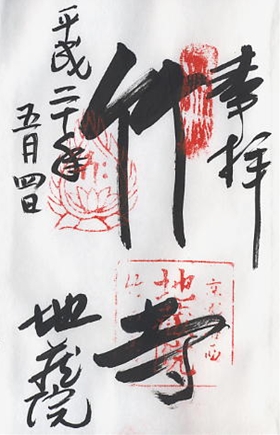 奉拝
竹
寺
平成二十年
五月四日
地蔵院